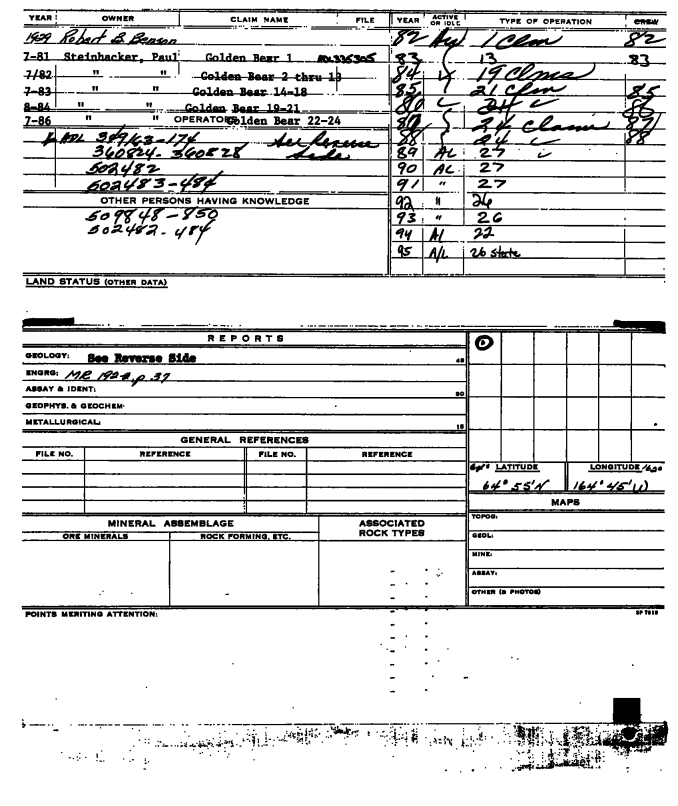 YEAR OWNER CLAIM NAME FILE YEAR ACTIVE OR IDLE TYPE OF OPERATION CREW
1909 Robert B Benson 82 1 Clm 82
7-81 Steinhacker, Paul Golden Bear 1 83 13 83
7/82 " " Golden Bear 2 thru 13 84 19 Clms
7-83 " " Golden Bear 14-18 85 21 Clm 85
8-84 " " Golden Bear 19-21 86
7-86 " " OPERATORS Golden Bear 22-24 87 24 Claims
ADL 349163-174 See Reverse 88 24 88
360824-360828 Side 89 AL 27
502482 90 AL 27
502483-484 91 " 27
OTHER PERSONS HAVING KNOWLEDGE 92 " 26
509848-850 93 " 26
502482-484 94 Al 22
95 A/L 26 state
LAND STATUS (OTHER DATA)
REPORTS
GEOLOGY: See Reverse Side 45
ENGRG: MR 192-2, p. 37
ASSAY & IDENT: 20
GEOPHYS. & GEOCHEM.
METALLURGICAL: 15
GENERAL REFERENCES
FILE NO. REFERENCE FILE NO. REFERENCE
LATITUDE LONGITUDE
64° 55'N 164° 45'W
MAPS
MINERAL ASSEMBLAGE ASSOCIATED ROCK TYPES
ORE MINERALS ROCK FORMING, ETC.
TOPOG:
GEOL:
MINE:
ASSAY:
OTHER (& PHOTOS)
POINTS MERITING ATTENTION: SP 7819